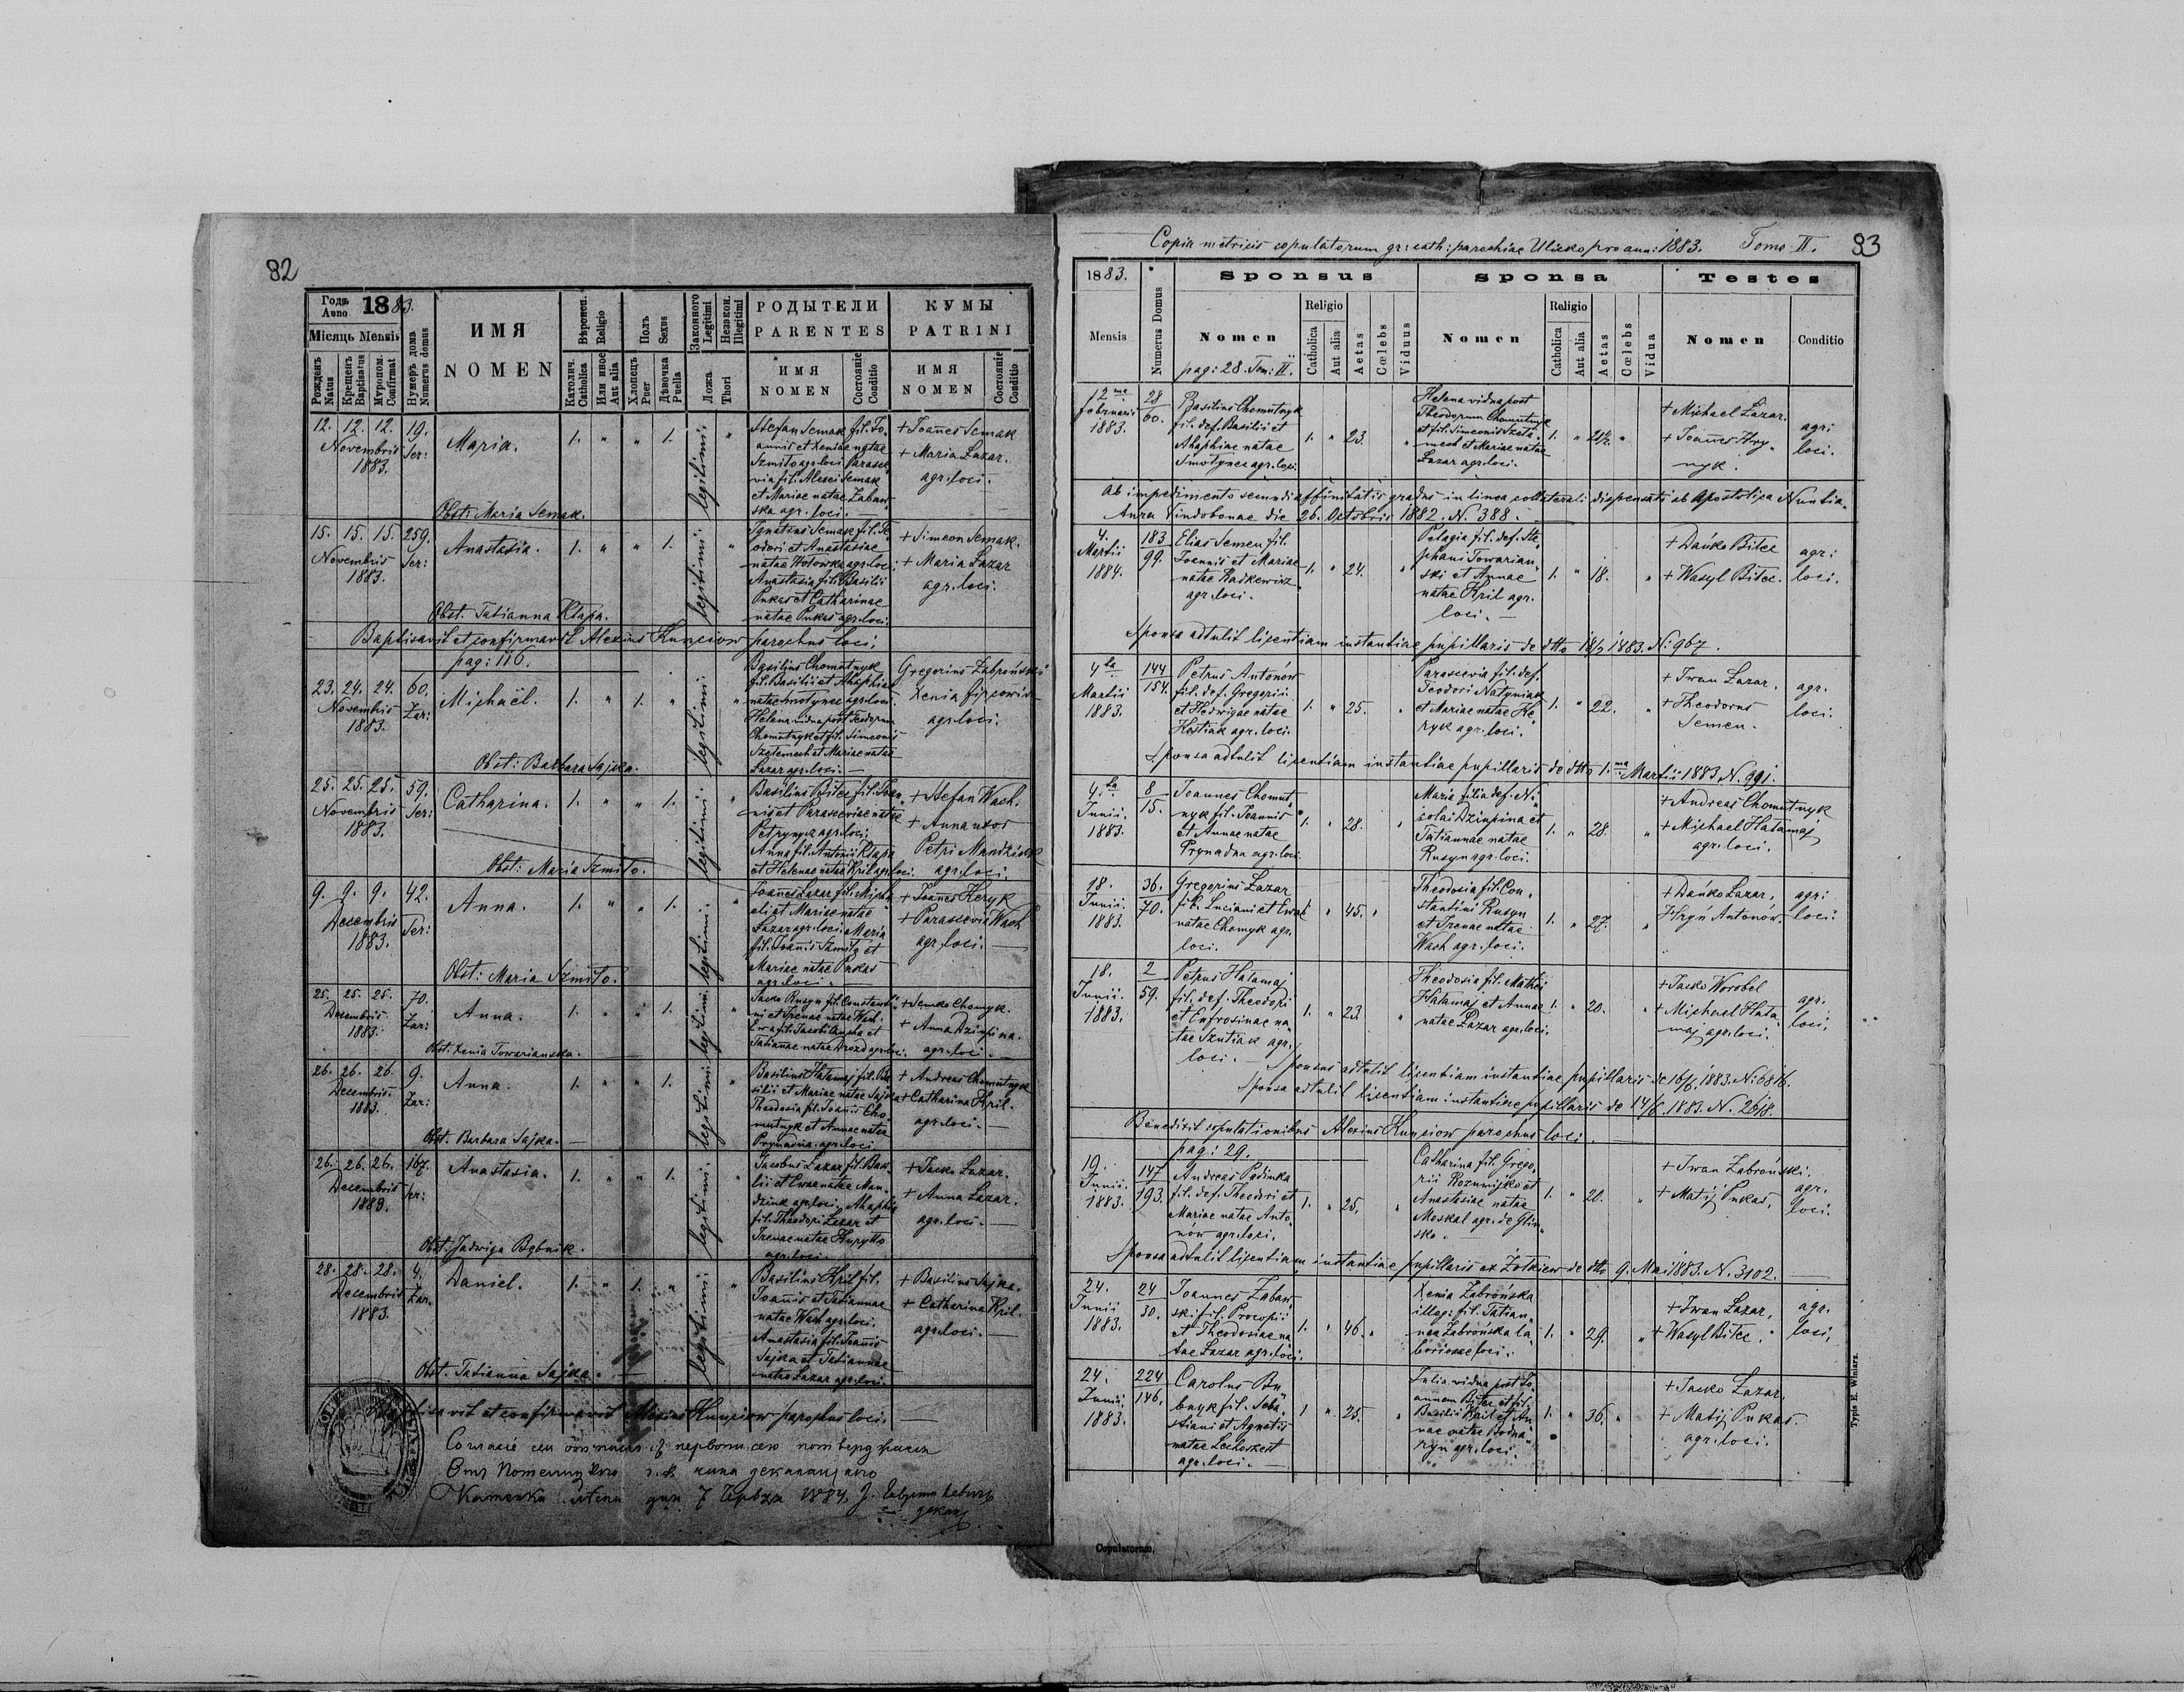 82
Годъ Anno 1883.
Місяць Mensis
Рожденъ Natus
Крещенъ Baptisatus
Мѵропом. Confirmat
Нумеръ дома Numerus domus
ИМЯ
NOMEN
Вѣроисп. Religio
Католич Catholica
Или иное Aut alia
Полъ Sexus
Хлопецъ Puer
Дѣвочка Puella
Законного Legitimi
Незакон. Illegitimi
Ложа Thori
РОДЫТЕЛИ
PARENTES
ИМЯ NOMEN
Состояніе Conditio
КУМЫ
PATRINI
ИМЯ NOMEN
Состояніе Conditio
12. 12. 12. 19.
Novembris Ser:
1883.
Maria.
1. " " 1. legitimi. "
Stefan Semak fil. Jo-
annis et Xeniae natae
Szmito agr. loci. Parasce
via fil. Alexei Semak
et Mariae natae Zabaw
ska agr. loci. —
+ Joañes Semak
+ Maria Lazar.
agr. loci. —
Obst: Maria Semak.
15. 15. 15. 259.
Novembris Ser:
1883.
Anastasia.
1. " " 1. legitimi. "
Ignatius Semak fil. Te
odori et Anastasiae
natae Hotowka agr. loci;
Anastasia fil. Basilii
Pukas et Catharinae
natae Pukas agr. loci
+ Simeon Semak.
+ Maria Lazar
agr. loci.
Obst. Tatianna Klapa.
Baptisavit et confirmavit Alexius Kunciow parochus loci;
pag: 116.
23. 24. 24. 60.
Novembris Zar:
1883.
Michaël.
1. " 1. " legitimi. "
Basilius Chomutnyk
fil. Basilii et Ahaphiae
natae Smotynec agr. loci.
Helena vidua post Teodorum
Chomutnyk et fil. Simeonis
Szetemech et Mariae natae
Lazar agr. loci. —
Gregorius Zabroński
Xenia
agr. loci.
Obst: Barbara Sajka.
25. 25. 25. 59.
Novembris Ser:
1883.
Catharina.
1. " " 1. legitimi. "
Basilius Bitec fil. Joan
nis et Parasceviae natae
Petrynycz agr. loci;
Anna fil. Antonii Klapa
et Helenae natae Kril agr. loci.
+ Stefan Wach.
+ Anna uxor
Petri Mandziuk
agr. loci.
Obst: Maria Szmito.
9. 9. 9. 42.
Decembris Ser:
1883.
Anna.
1. " " 1. legitimi. "
Joañes Lazar fil. Micha
eli et Mariae natae
Lazar agr. loci. Maria
fil. Joannis Szmito et
Mariae natae Pukas
agr. loci. —
+ Joañes Heryk
+ Parascevia Wach
agr. loci. —
Obst: Maria Szmito.
25. 25. 25. 70.
Decembris Zar:
1883.
Anna.
1. " " 1. legitimi. "
Jacko Rusyn fil. Constanti
ni et Irenae natae Wach.
Ewa fil. Jacobi et
Tatiañae natae Drozd agr. loci.
+ Semko Chomyk.
+ Anna Dziupina.
agr. loci. —
Obst. Xenia Towarianska.
26. 26. 26. 9.
Decembris Zar:
1883.
Anna.
1. " " 1. legitimi. "
Basilius Hatamaj fil. Ba
silii et Mariae natae Sajka
Theodosia fil. Joanis Cho
mutnyk et Annae natae
Prynadna agr. loci
+ Andreas Chomutnyk
+ Catharina Kril.
agr. loci. —
Obst. Barbara Sajka. —
26. 26. 26. 167.
Decembris Ser:
1883.
Anastasia.
1. " " 1. legitimi. "
Jacobus Lazar fil. Basi
lii et Ewae natae Man
dziuk agr. loci. Ahaphia
fil. Theodori Lazar et
Irenae natae Kuryllo
agr. loci.
+ Jacko Lazar.
+ Anna Lazar.
agr. loci. —
Obst. Jadwiga Bębnik.
28. 28. 28. 4.
Decembris Zar.
1883.
Daniel.
1. " 1. " legitimi. "
Basilius Kril fil.
Joannis et Tatiannae
natae Wach agr. loci.
Anastasia fil. Joannis
Sajka et Tatiannae
natae Lazar agr. loci.
+ Basilius Sajka.
+ Catharina Kril.
agr. loci. —
Obst. Tatianna Sajka. —
Baptisavit et confirmavit Alexius Kunciow parochus loci. —
83
Copia metricis copulatorum gr: cath: parochiae Ulicko pro anno: 1883. Tomo II.
1883.
Mensis
Numerus Domus
Sponsus
Nomen
Religio
Catholica
Aut alia
Aetas
Cœlebs
Viduus
Sponsa
Nomen
Religio
Catholica
Aut alia
Aetas
Cœlebs
Vidua
Testes
Nomen
Conditio
pag: 28. Tom: II.
12 ma februarii 1883.
28
60.
Basilius Chomutnyk
fil. def. Basilii et
Ahaphiae natae
Smotynec agr. loci
1. " 23. "
Helena vidua post
Theodorum Chomutnyk
et fil. Simeonis Szete
mech et Mariae natae
Lazar agr. loci.
1. " 21½ "
+ Michael Lazar.
+ Joannes Hry-
nyk.
agr: loci.
Ab impedimento secundi affinitatis gradus in linea collaterali dispensati ab Apostolica Nuntia-
tura Vindobonae die 26. Octobris 1882. N. 388. —
4. Martii 1884.
183
99.
Elias Semen fil.
Joannis et Mariae
natae Radkewicz
agr. loci.
1. " 24. "
Pelagia fil. def. Ste
phani Towarian
ski et Annae
natae Kril agr.
loci. —
1. " 18. "
+ Dańko Bitec
+ Wasyl Bitec.
agr: loci.
Sponsa adtulit licentiam instantiae pupillaris de dtto 18/2 1883. N: 967.
4 ta Martii 1883
144
154.
Petrus Antonów
fil. def. Gregorii
et Hedwigae natae
Hostiak agr. loci.
1. " 25. "
Parascevia fil. def.
Teodori Natyniak
et Mariae natae He
ryk agr. loci.
1. " 22. "
+ Iwan Lazar.
+ Theodorus
Semen.
agr. loci.
Sponsa adtulit licentiam instantiae pupillaris de dtto 1. ma Martii 1883 N. 991.
4. ta Junii. 1883.
8
15.
Joannes Chomut
nyk fil. Joannis
et Annae natae
Prynadna agr. loci
1. " 28. "
Maria filia def. Ni
colai Dziupina et
Tatiannae natae
Rusyn agr. loci.
1. " 28. "
+ Andreas Chomutnyk
+ Michael Hatamaj
agr. loci.
18. Junii. 1883.
36.
70.
Gregorius Lazar
fil. Luciani et Ewae
natae Chomyk agr.
loci.
" 45. "
Theodosia fil. Con
stantini Rusyn
et Irenae natae
Wach agr. loci.
1. " 27. "
+ Dańko Lazar,
Hryn Antonów.
agri loci.
18. Junii. 1883.
2
59.
Petrus Hatamaj
fil. def. Theodori
et Eufrosinae na
tae Szutiak agr.
loci. —
1. " 23 "
Theodosia fil. Mathei
Hatamaj et Annae
natae Lazar agr. loci.
1. " 20. "
+ Jacko Worobel
+ Michael Hata
maj agr. loci.
agr. loci;
Sponsus adtulit licentiam instantiae pupillaris de 16/6. 1883. N: 6816.
Sponsa adtulit licentiam instantiae pupillaris de 14/6. 1883. N. 2618.
Benedixit copulationibus Alexius Kunciow parochus loci.
pag: 29.
19. Junii. 1883.
147
193.
Andreas Padinka
fil. def. Theodori et
Mariae natae Anto
nów agr. loci.
1. " 25. "
Catharina fil. Grego
rii Rozumijko et
Anastasiae natae
Moskal agr. de Glin
sko. —
1. " 20. "
+ Iwan Zabroński.
+ Matij Pukas,
agr. loci.
Sponsa adtulit licentiam instantiae pupillaris ex Zołkiew de dtto 9. Mai 1883. N. 3102. —
24. Junii 1883.
24
30.
Joannes Zabaw
ski fil. Procopii
et Theodosiae na
tae Lazar agr. loci.
1. " 46. "
Xenia Zabrońska
illeg: fil. Tatian
nae Zabrońska la
boriosae loci.
1. " 29. "
+ Iwan Lazar,
+ Wasyl Bitec.
agr. loci,
24. Junii. 1883.
224
146.
Carolus Bu
bnyk fil. Seba
stiani et Agnetis
natae Lechoszest
agr. loci. —
1 " 25. "
Julia vidua post Jo
annem Bitec et fil.
Basilii Kril et An
nae natae Bodna
ryn agr. loci.
1. " 36. "
+ Jacko Lazar.
+ Matij Pukas.
agr. loci.
Typis E. Winiarz.
Copulatorum.